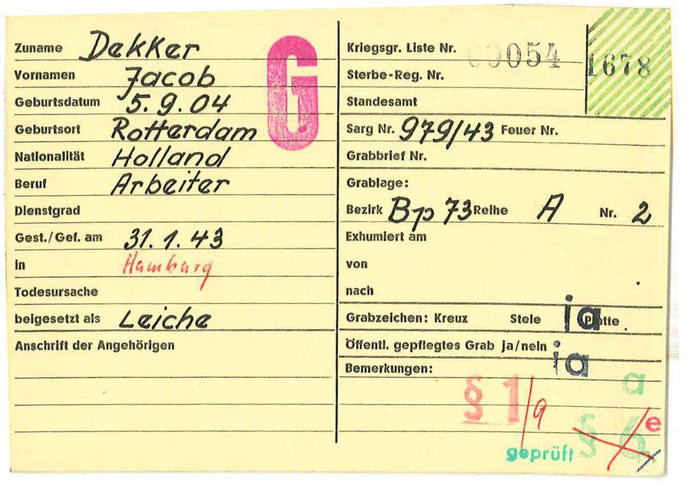 Zuname Dekker
Vornamen Jacob
Geburtsdatum 5.9.04
Geburtsort Rotterdam
Nationalität Holland
Beruf Arbeiter
Dienstgrad
Gest./Gef. am 31.1.43
in Hamburg
Todesursache
beigesetzt als Leiche
Anschrift der Angehörigen
G
Kriegsgr. Liste Nr. 00054
1678
Sterbe-Reg. Nr.
Standesamt
Sarg Nr. 979/43 Feuer Nr.
Grabbrief Nr.
Grablage:
Bezirk Bp 73 Reihe A Nr. 2
Exhumiert am
von
nach
Grabzeichen: Kreuz Stele Platte ja
Öffentl. gepflegtes Grab ja/nein ja
Bemerkungen:
a
§ 1/a
§ 6 e
geprüft